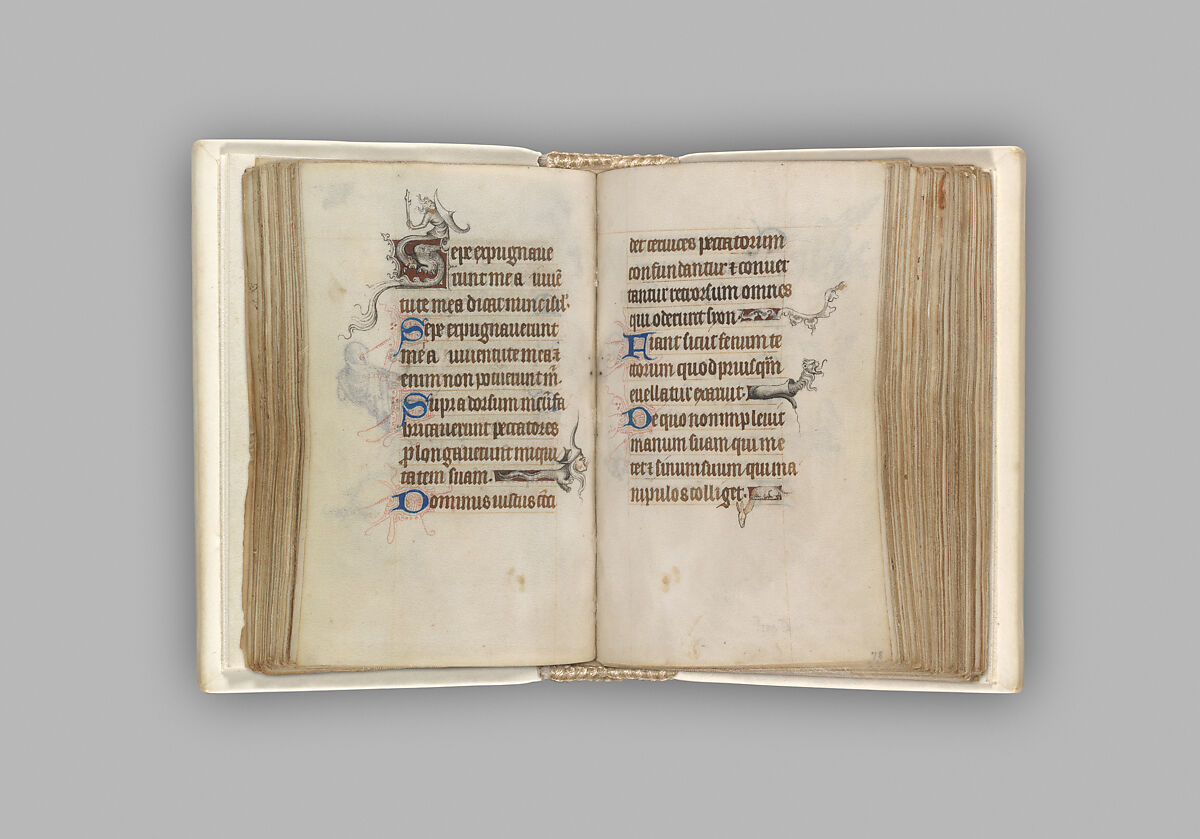 Sepe expugnaue
runt me a iuuē
tute mea dicat nunc isrl'.
Sepe expugnauerunt
me a iuuentute mea ⁊
enim non potuerunt m̄.
Supra dorsum meū fa
bricauerunt peccatores
ꝓlongauerunt iniqui
tatem suam.
Dominus iustus cōci
det ceruices peccatorum
confundantur ⁊ conuer
tantur retrorsum omnes
qui oderunt syon.
Fiant sicut fenum te
ctorum quod priusqm̄
euellatur exaruit.
De quo non impleuit
manum suam qui me
tet ⁊ sinum suum qui ma
nipulos colliget.
78